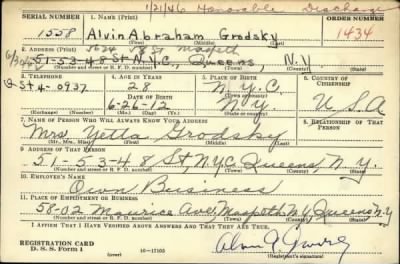 1/21/46 Honorable Discharge
SERIAL NUMBER 1. NAME (Print) ORDER NUMBER
1558 Alvin Abraham Grodsky 1434
(First) (Middle) (Last)
2. ADDRESS (Print) Maspeth
51-53-48 St N.Y.C., Queens, N.Y
(Number and street or R. F. D. number) (Town) (County) (State)
3. TELEPHONE 4. AGE IN YEARS 5. PLACE OF BIRTH 6. COUNTRY OF CITIZENSHIP
St 4-0937 28 N.Y.C.
DATE OF BIRTH (Town or county)
6-26-12 N.Y. U.S.A
(Exchange) (Number) (Mo.) (Day) (Yr.) (State or country)
7. NAME OF PERSON WHO WILL ALWAYS KNOW YOUR ADDRESS 8. RELATIONSHIP OF THAT PERSON
Mrs Yetta Grodsky
(Mr., Mrs., Miss) (First) (Middle) (Last)
9. ADDRESS OF THAT PERSON
51-53-48 St, N.Y.C. Queens, N.Y.
(Number and street or R. F. D. number) (Town) (County) (State)
10. EMPLOYER'S NAME
Own Business
11. PLACE OF EMPLOYMENT OR BUSINESS
58-02 Maurice Ave, Maspeth N.Y. Queens N.Y
(Number and street or R. F. D. number) (Town) (County) (State)
I AFFIRM THAT I HAVE VERIFIED ABOVE ANSWERS AND THAT THEY ARE TRUE.
REGISTRATION CARD
D. S. S. Form 1 (over) 16-17105 (Registrant's signature)